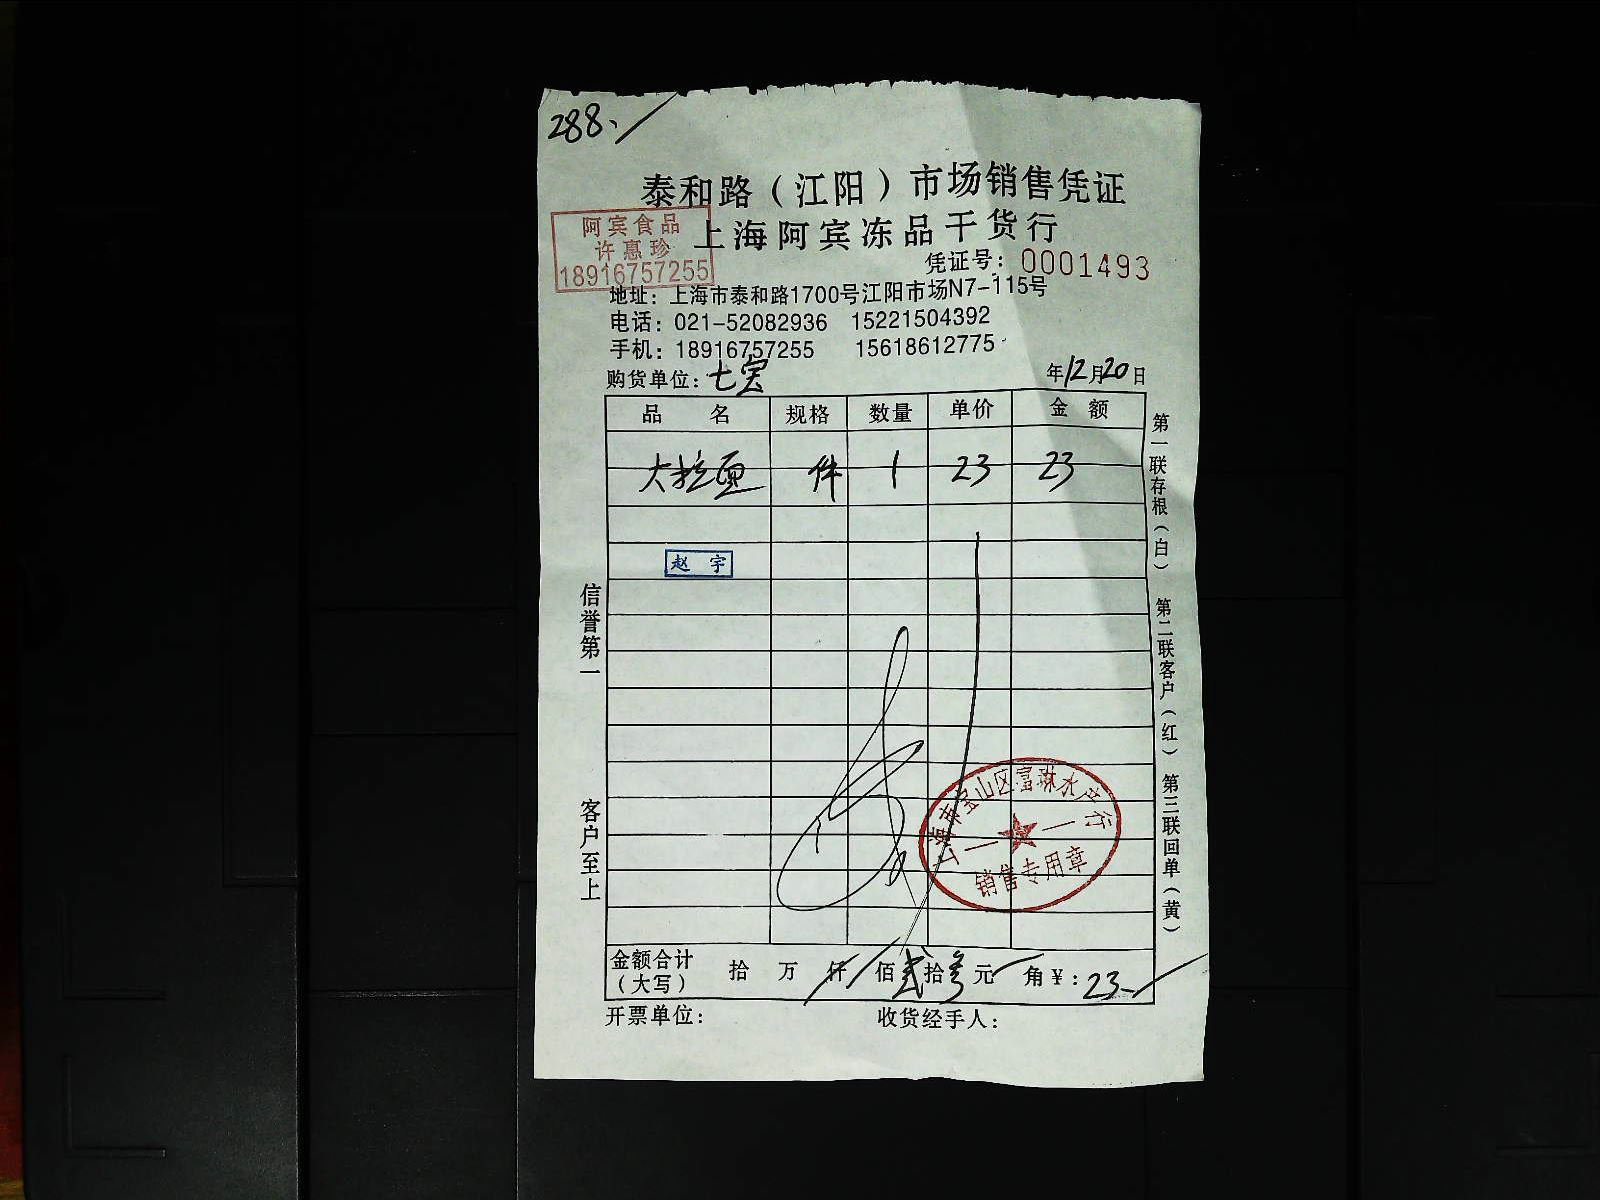 288、
泰和路（江阳）市场销售凭证
上海阿宾冻品干货行
阿宾食品
许惠珍
18916757255
凭证号：0001493
地址：上海市泰和路1700号江阳市场N7-115号
电话：021-52082936 15221504392
手机：18916757255 15618612775
购货单位：七宝 年12月20日
品名 规格 数量 单价 金额
大拉面 件 1 23 23
赵宇
信誉第一
客户至上
第一联存根（白） 第二联客户（红） 第三联回单（黄）
上海市宝山区富琳水产行
销售专用章
金额合计（大写） 拾 万 仟 佰 贰拾叁元 角 ￥：23
开票单位： 收货经手人：